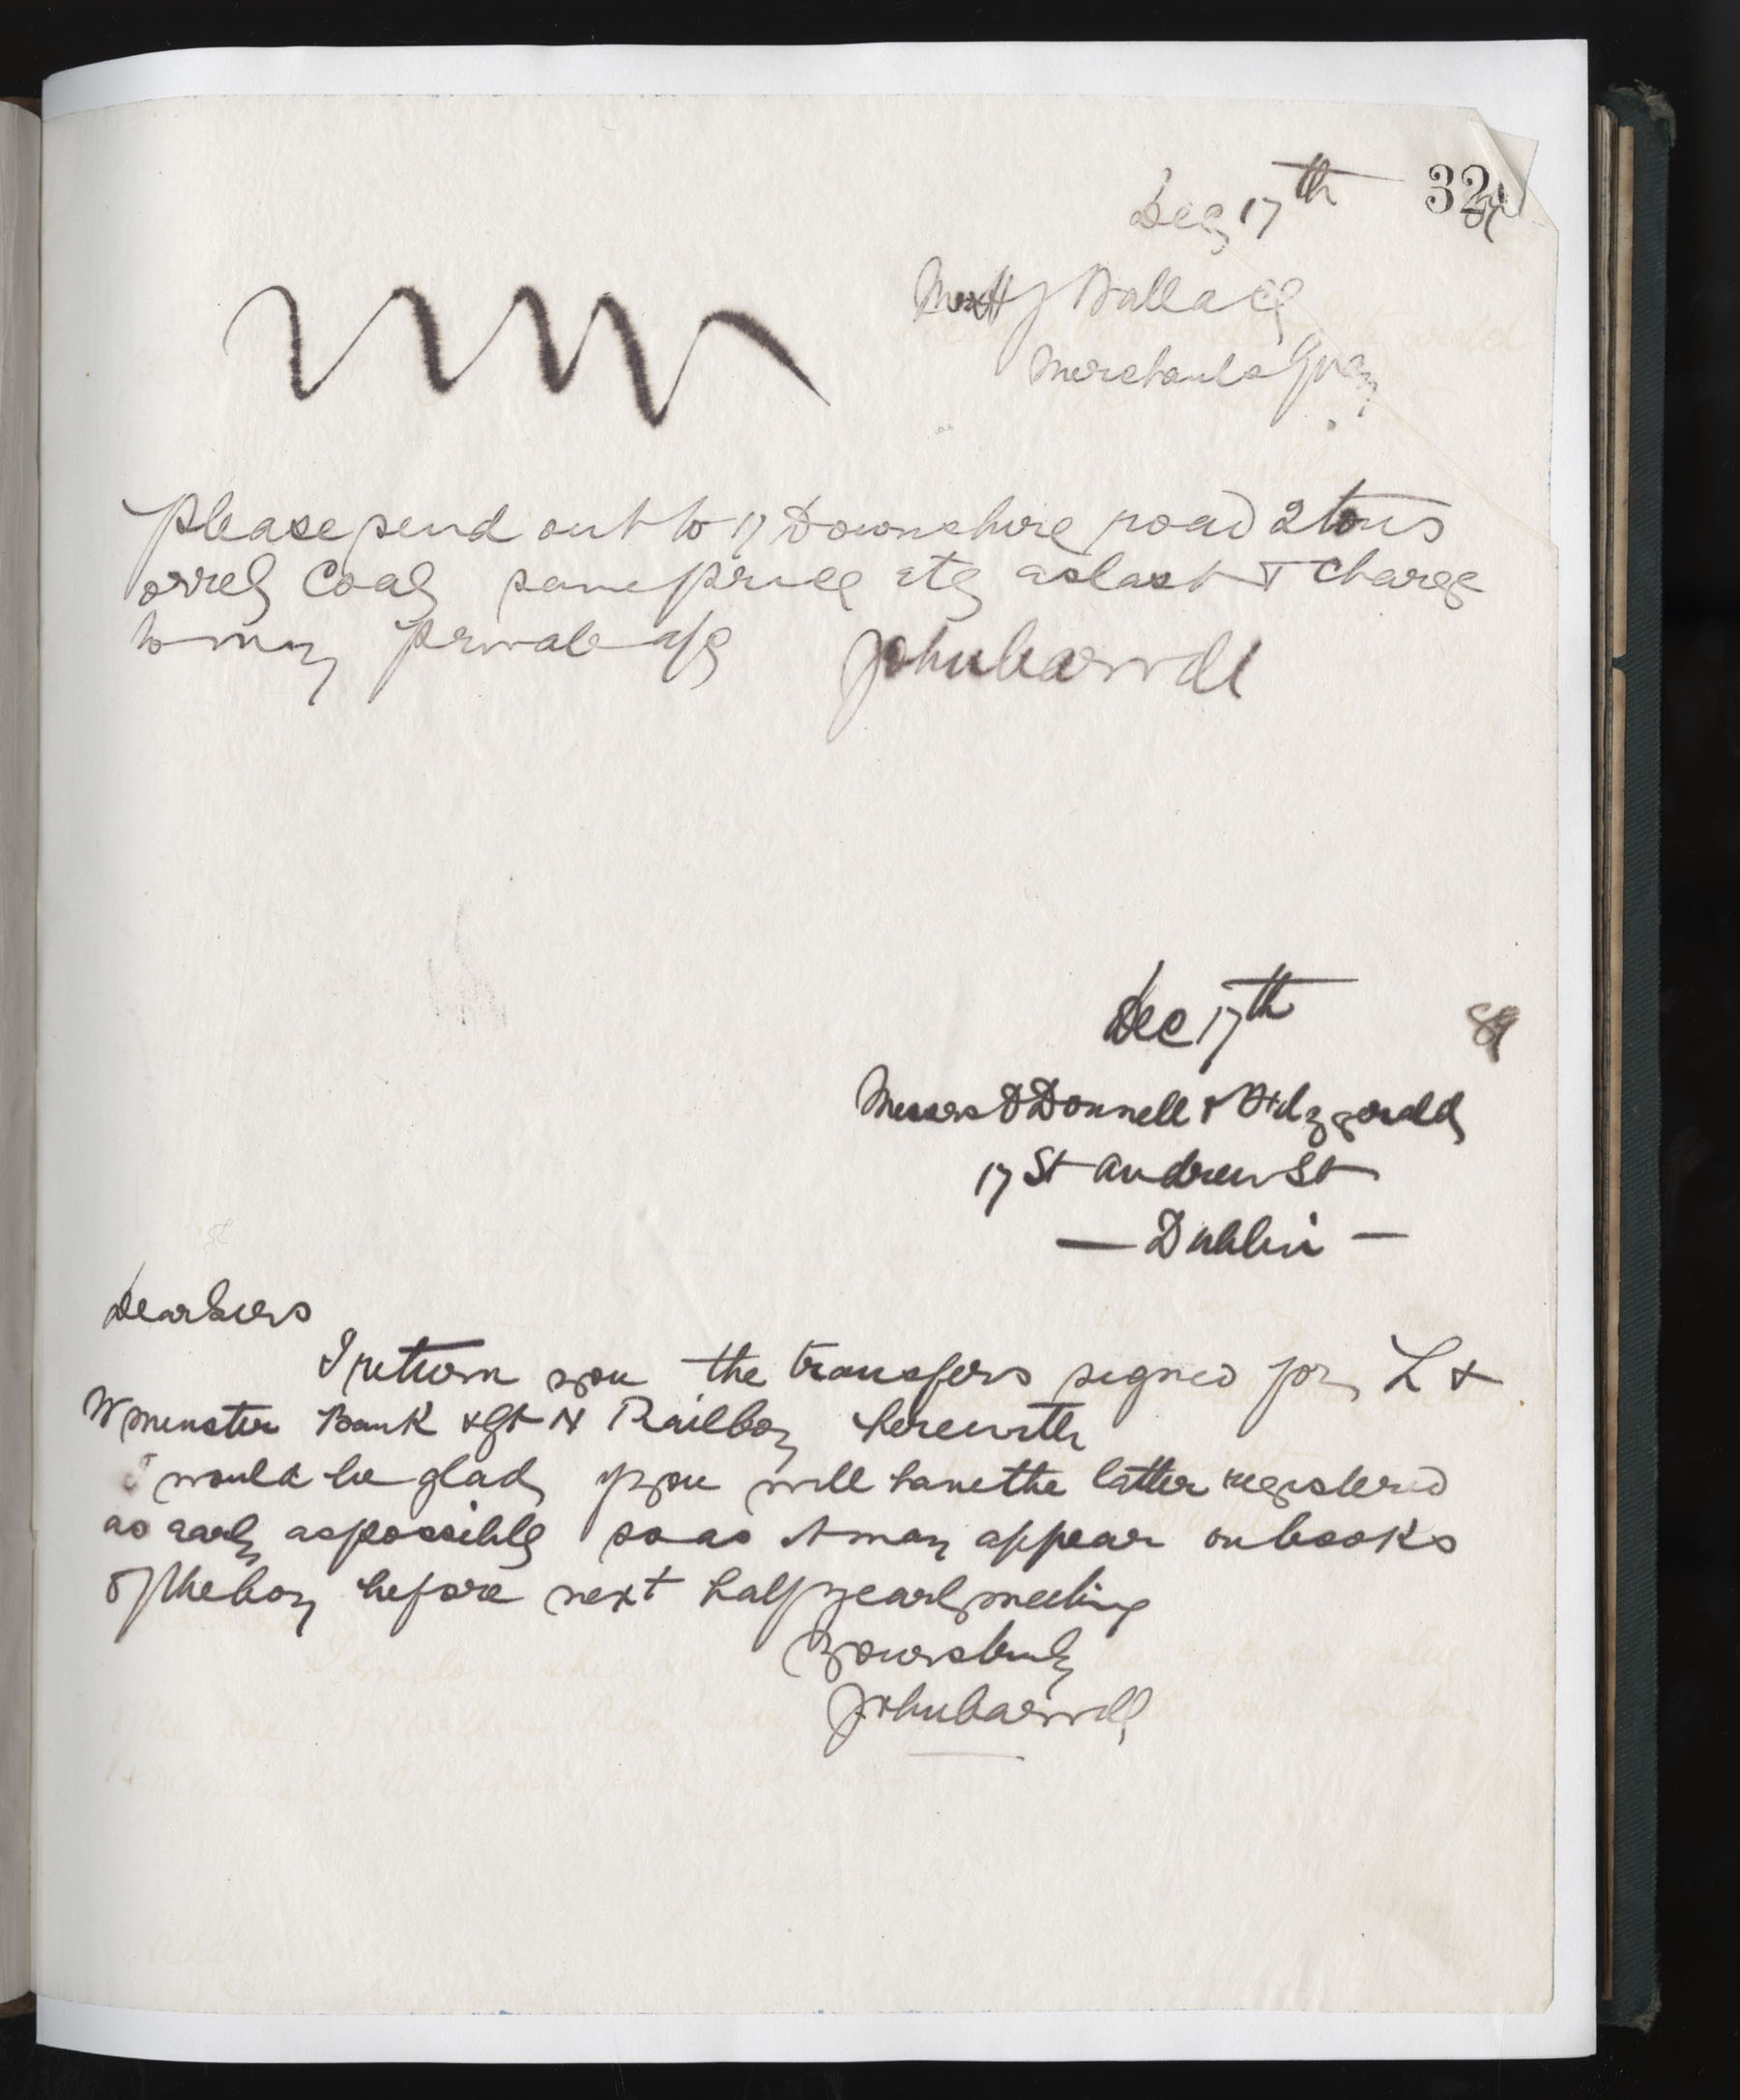 Dec 17th 32
Wallace
Merchants Quay
Please send out to 17 Downshire road 2 tons
orrel Coal same price etc as last & charge
to my private a/c John Carroll
Dec 17th 89
Messrs O Donnell & Fitzgerald
17 St Andrew St
— Dublin —
Dear Sirs
I return you the transfers signed for L &
Wminster Bank & Gt N Railway herewith
I would be glad if you will have the latter registered
as early as possible so as it may appear on books
of the Coy before next half yearly meeting
Yours truly
John Carroll